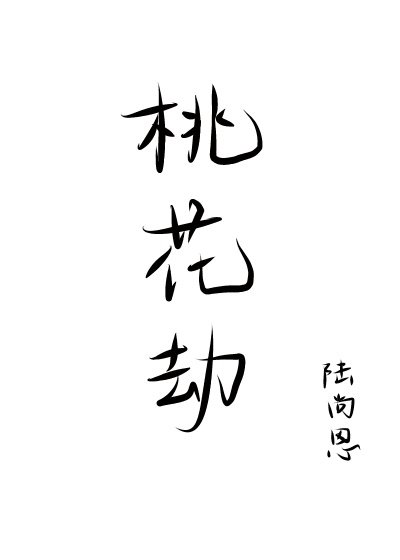 桃花劫
陆尚恩